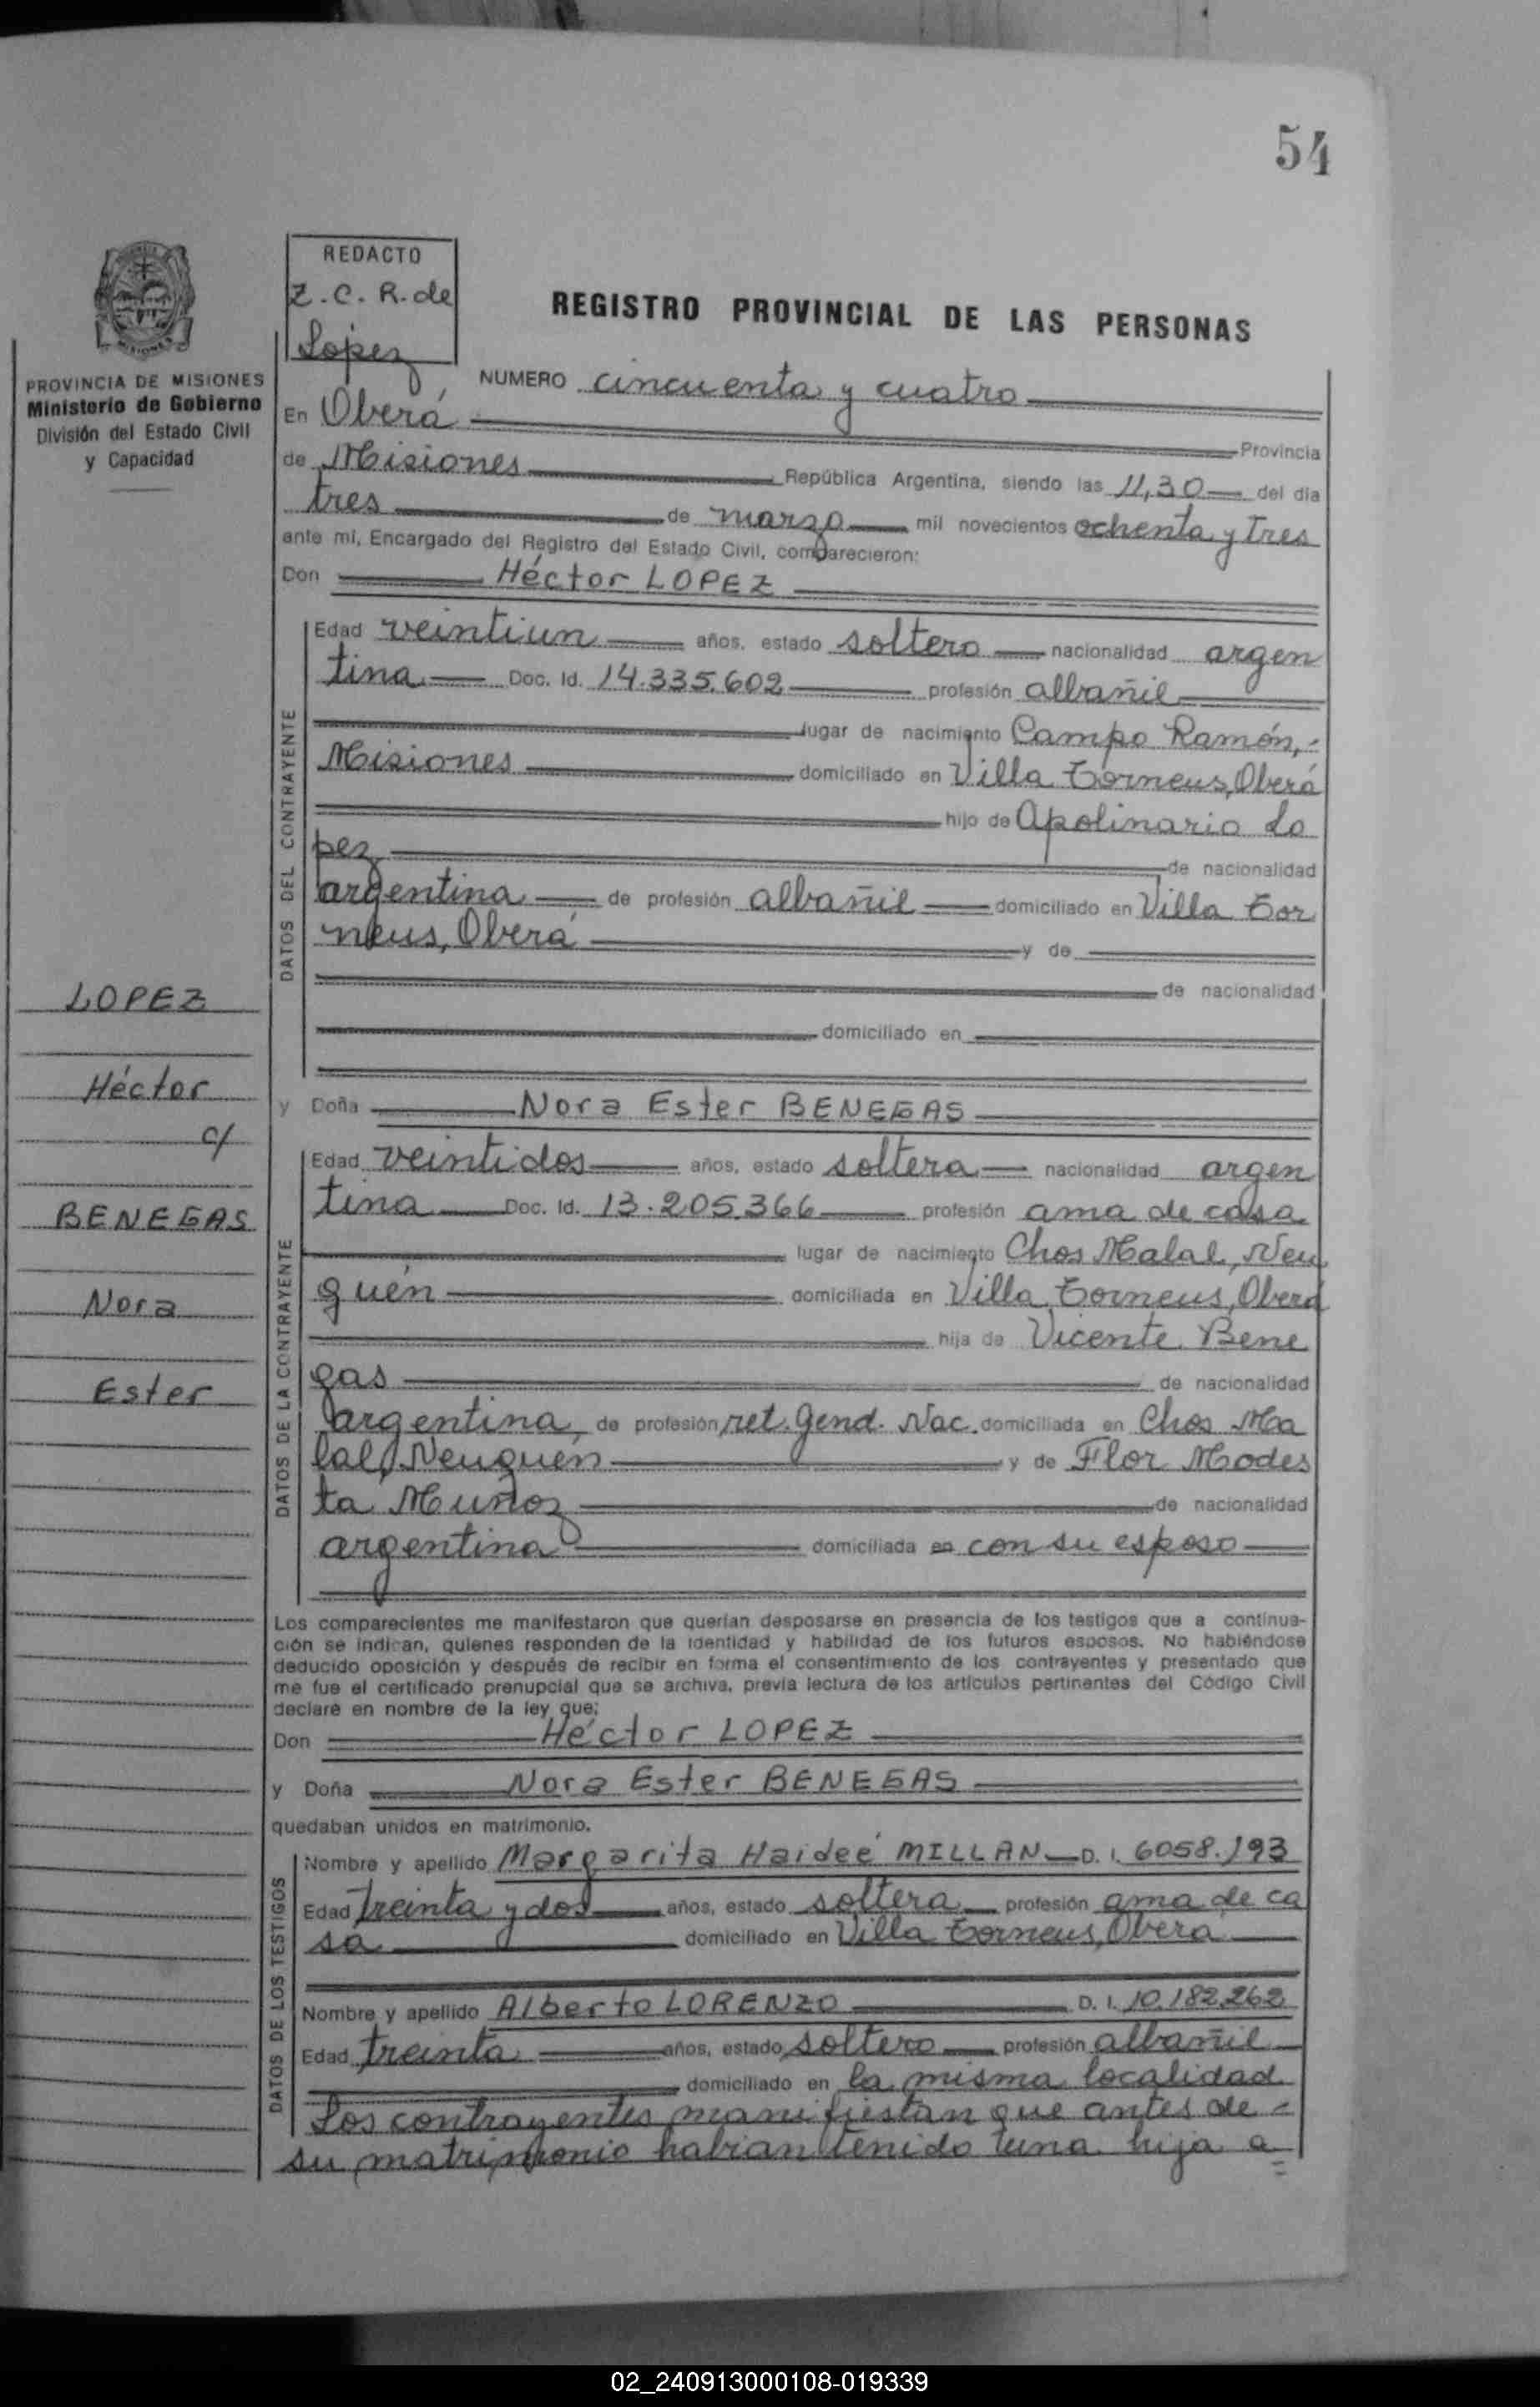 54
REDACTO
Z. C. R. de
Lopez
REGISTRO PROVINCIAL DE LAS PERSONAS
PROVINCIA DE MISIONES
Ministerio de Gobierno
División del Estado Civil
y Capacidad
NUMERO cincuenta y cuatro
En Oberá Provincia
de Misiones República Argentina, siendo las 11,30 del día
tres de marzo mil novecientos ochenta y tres
ante mí, Encargado del Registro del Estado Civil, comparecieron:
Don Héctor LOPEZ
DATOS DEL CONTRAYENTE
Edad veintiun años, estado soltero nacionalidad argen
tina Doc. Id. 14.335.602 profesión albañil
lugar de nacimiento Campo Ramón,
Misiones domiciliado en Villa Torneus, Oberá
hijo de Apolinario Lo
pez de nacionalidad
argentina de profesión albañil domiciliado en Villa Tor
neus, Oberá y de
de nacionalidad
domiciliado en
LOPEZ
Héctor
c/
BENEGAS
Nora
Ester
y Doña Nora Ester BENEGAS
DATOS DE LA CONTRAYENTE
Edad veintidos años, estado soltera nacionalidad argen
tina Doc. Id. 13.205.366 profesión ama de casa
lugar de nacimiento Chos Malal, Neu
quén domiciliada en Villa Torneus, Oberá
hija de Vicente Bene
gas de nacionalidad
argentina, de profesión ret. Gend. Nac. domiciliada en Chos Ma
lal, Neuquén y de Flor Modes
ta Muñoz de nacionalidad
argentina domiciliada en con su esposo
Los comparecientes me manifestaron que querían desposarse en presencia de los testigos que a continua-
ción se indican, quienes responden de la identidad y habilidad de los futuros esposos. No habiéndose
deducido oposición y después de recibir en forma el consentimiento de los contrayentes y presentado que
me fue el certificado prenupcial que se archiva, previa lectura de los artículos pertinentes del Código Civil
declaré en nombre de la ley que:
Don Héctor LOPEZ
y Doña Nora Ester BENEGAS
quedaban unidos en matrimonio.
DATOS DE LOS TESTIGOS
Nombre y apellido Margarita Haideé MILLAN D. I. 6058.193
Edad treinta y dos años, estado soltera profesión ama de ca
sa domiciliado en Villa Torneus, Oberá
Nombre y apellido Alberto LORENZO D. I. 10.182.262
Edad treinta años, estado soltero profesión albañil
domiciliado en la misma localidad
Los contrayentes manifiestan que antes de
su matrimonio habian tenido una hija a
02_240913000108-019339